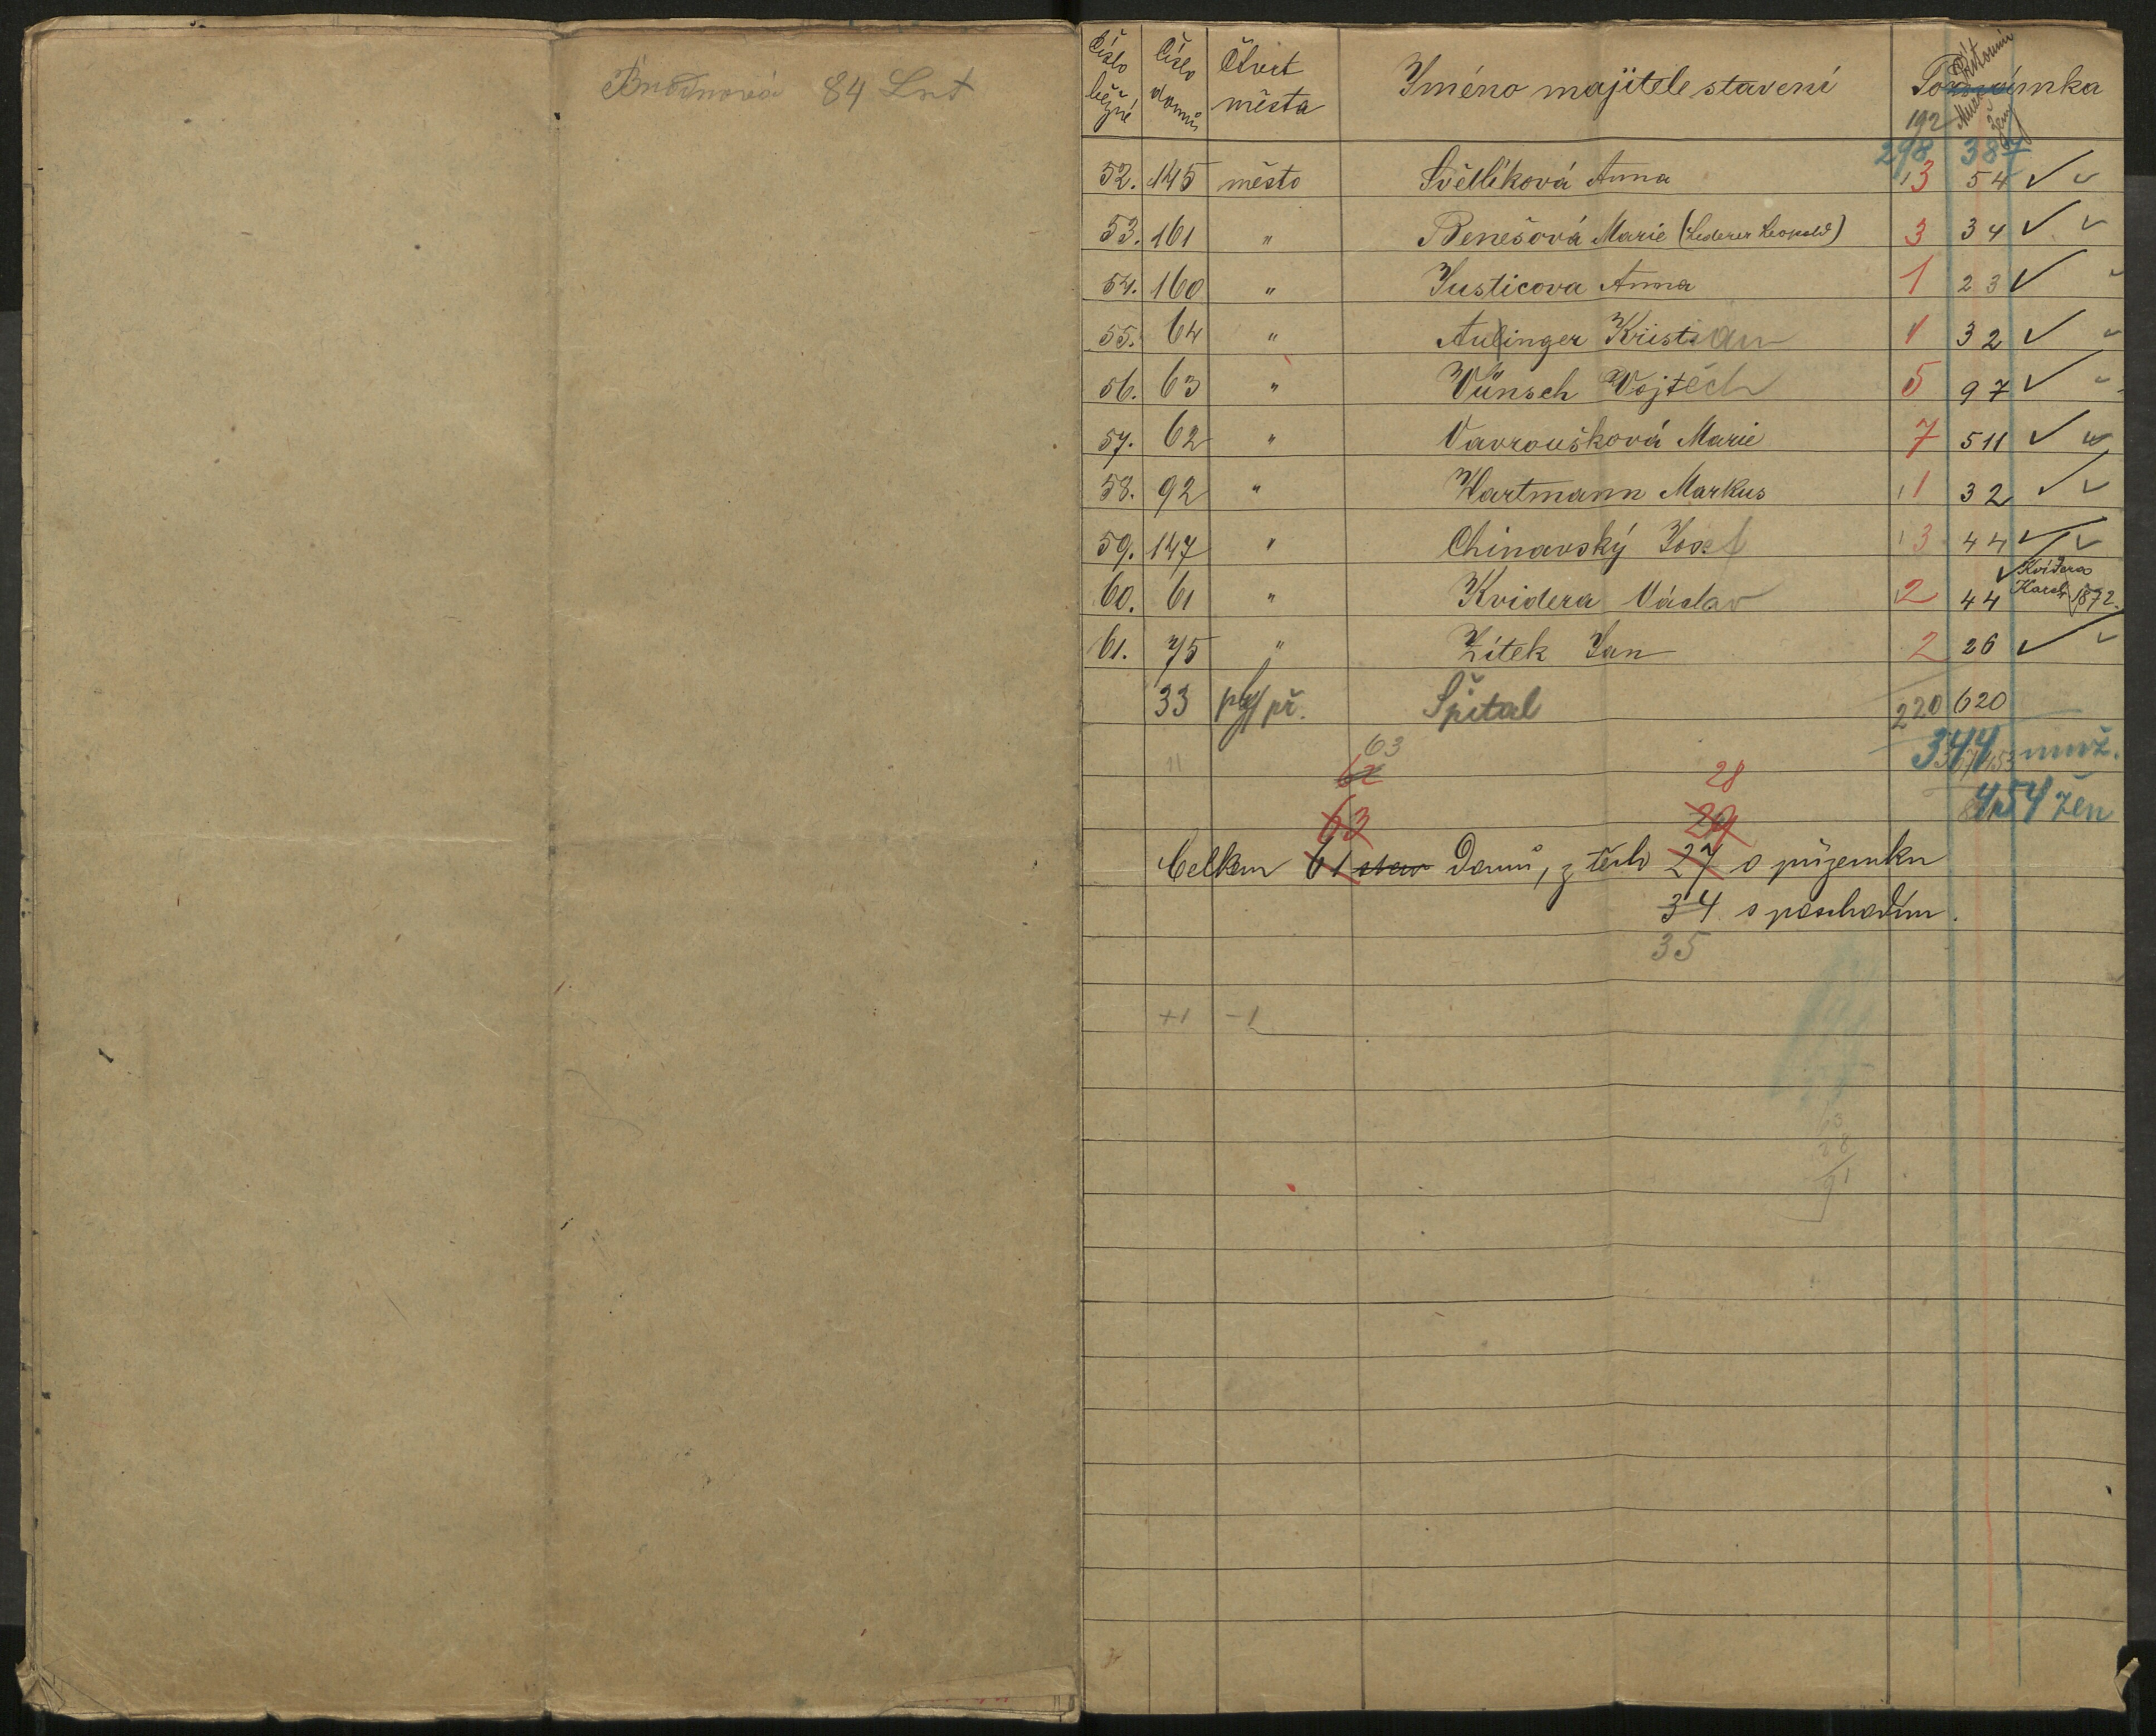 84 Let
Číslo běžné Číslo domu Čtvrt města Jméno majitele stavení Poznámka
Přítomní
Muži Ženy
192
298 387
52. 145 město Světlíková Anna 3 5 4 ✓ ✓
53. 161 " Benešová Marie (Lederer Leopold) 3 3 4 ✓ ✓
54. 160 " Justicova Anna 1 2 3 ✓
55. 64 " Aulinger Kristian 1 3 2 ✓ ✓
56. 63 " Wünsch Vojtěch 5 9 7 ✓
57. 62 " Vavroušková Marie 7 5 11 ✓
58. 92 " Hartmann Markus 1 3 2 ✓ ✓
59. 147 " Chinavský Josef 3 4 4 ✓ ✓
60. 61 " Kvidera Václav 2 4 4 ✓ Kvidera Karel 1872.
61. 75 " Zítek Jan 2 2 6 ✓ ✓
33 př. Špital 220 6 20
63
11 62 28 344 muž.
63 29 454 žen
Celkem 61 stav domů, z těch 27 o přízemku
34 s poschodím.
35
+1 -1